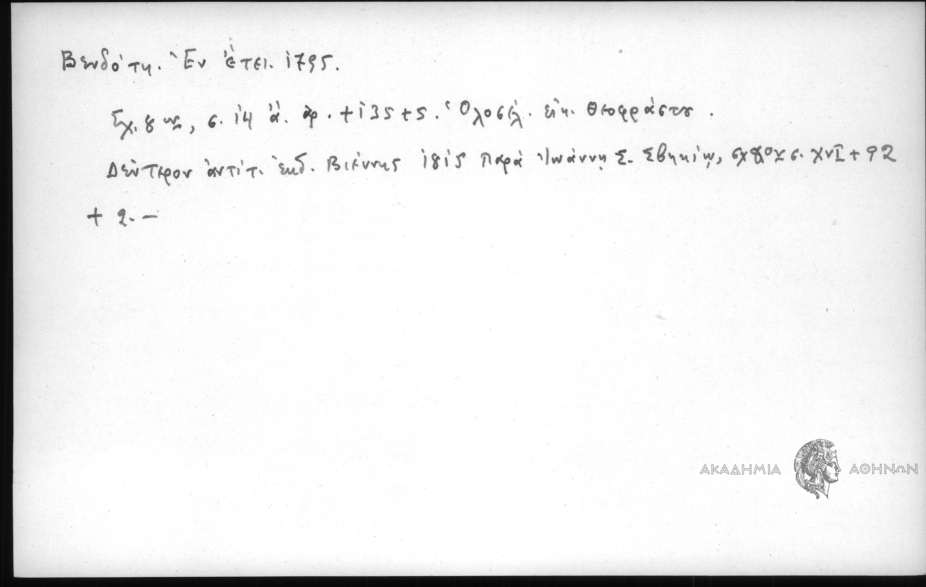 Βενδότη. Ἐν ἔτει. 1795.
Σχ. 8ον, σ. 14 ἄ. ἀρ. + 135 + 5. Ὁλοσέλ. εἰκ. Θεοφράστου.
Δεύτερον ἀντίτ. ἐκδ. Βιέννης 1815 παρὰ Ἰωάννῃ Σ. σ. XVI + 92
+ 2. —
ΑΚΑΔΗΜΙΑ ΑΘΗΝΩΝ